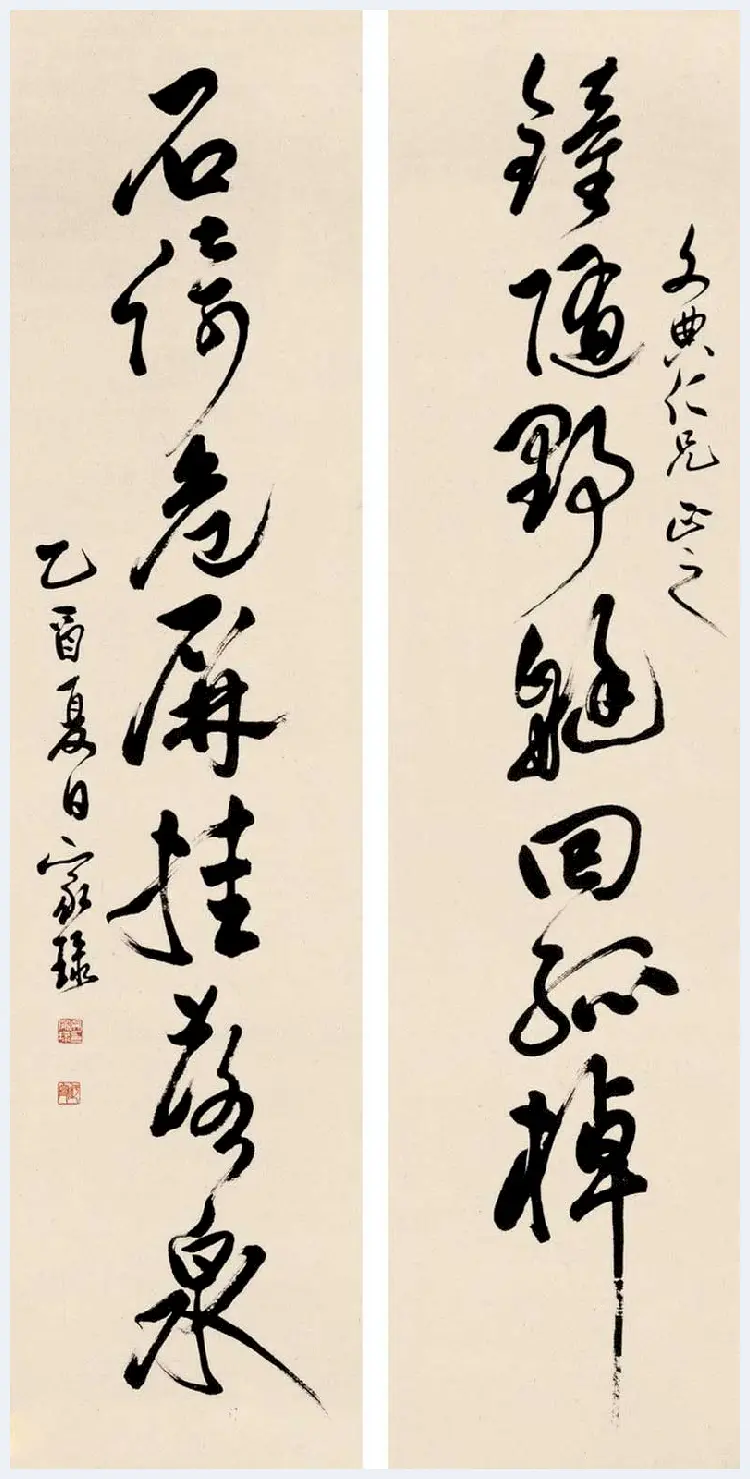 鐘隨野艇回孤棹
文典仁兄正之
石倚危屏挂落泉
乙酉夏日家琭